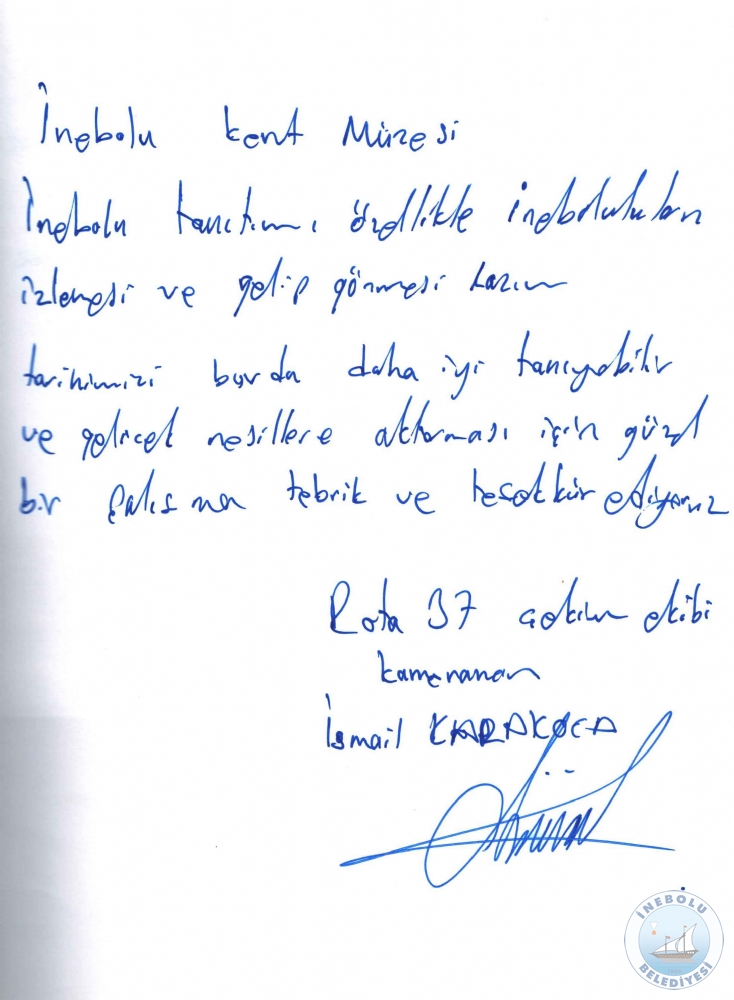 İnebolu kent Müzesi
İnebolu tanıtımı özellikle ineboluluların
izlemesi ve gelip görmesi lazım
tarihimizi burda daha iyi tanıyabilir
ve gelicek nesillere aktarması için güzel
bir çalışma tebrik ve teşekkür ediyoruz
Rota 37 çekim ekibi
kameraman
İsmail KARAKOCA
İNEBOLU
BELEDİYESİ